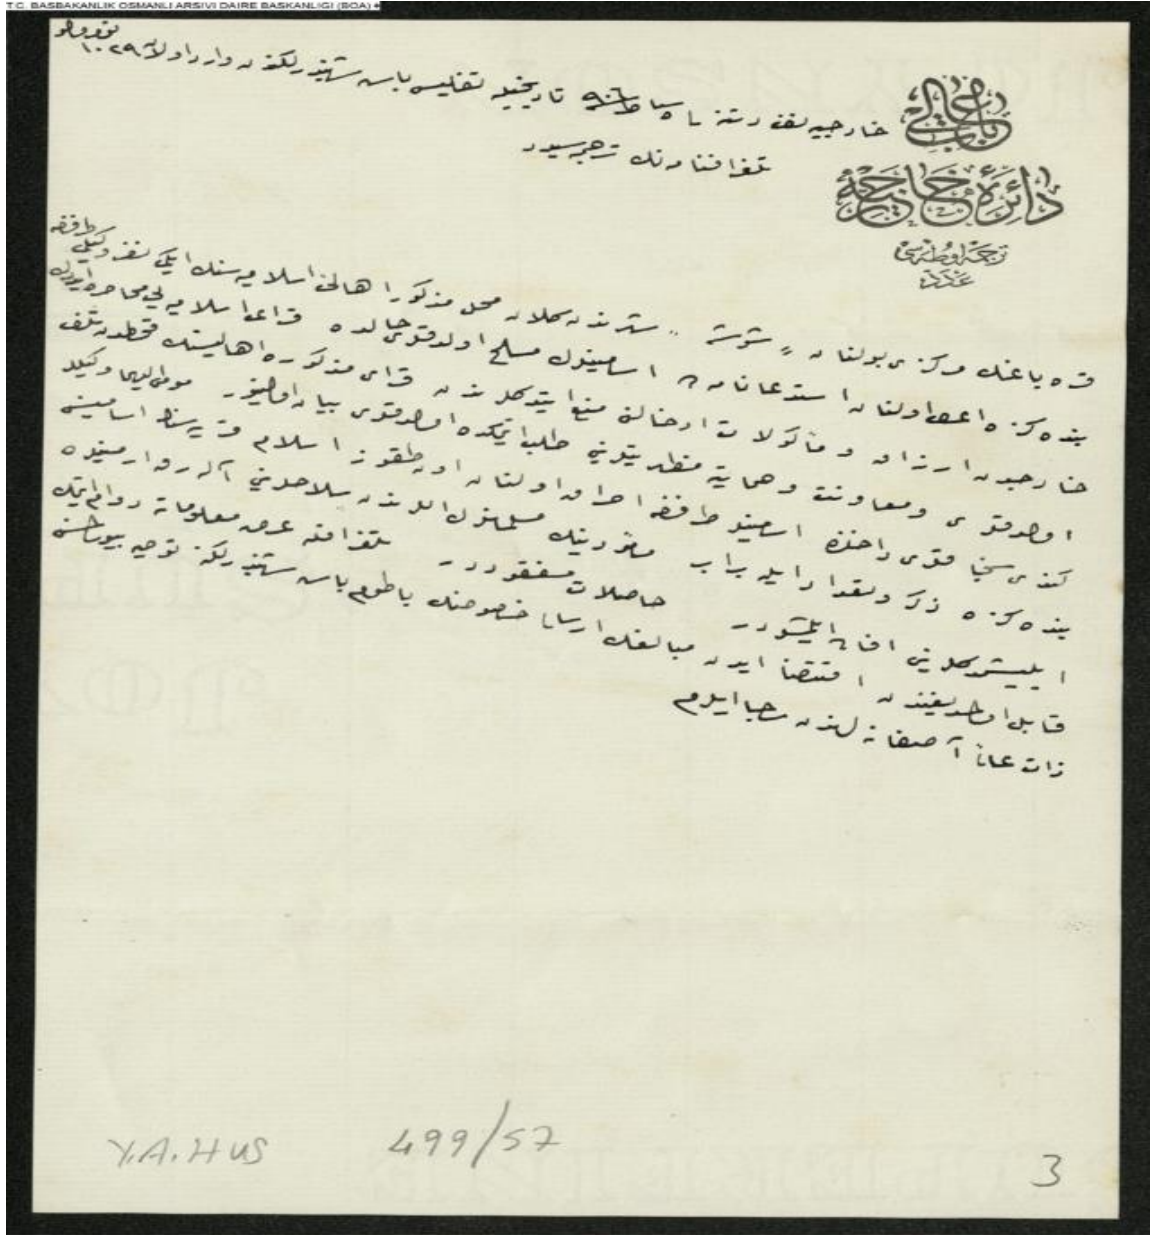 T.C. BASBAKANLIK OSMANLI ARSIVI DAIRE BASKANLIGI (BOA)
باب عالی
دائرهٔ خارجیه
ترجمه اوطه‌سی
عدد
خارجیه تاریخیله تفلیس باش شهبندرلكندن وارد اولان ١٠٢٩ نومرولو
تلغرافنامه‌نك ترجمه‌سیدر
قره باغك مركزی بولنان شوشه شهرندن كلان محل مذكور اهالئ اسلامیه‌سنك ایكی نفر وكیلی طرفندن
بنده‌كزه اعطا اولنان استدعانامه‌ده مسلح اولدقلری حالده قرای اسلامیه‌یی محاصره ایدرك
خارجدن ارزاق و مأكولات ادخالنی منع ایتدكلرندن قرای مذكوره اهالیسنك قحطدن تلف
اولدقلری ومعاونت وحمایه طلب ایتمكده اولدقلری بیان اولنیور مومی الیهما وكیللر
كندی طرفندن احراق اولنان اون طقوز اسلام قریه‌سنك اسامیسنی
بنده‌كزه ذكر وتعداد ایله برابر مسلمانلرك اللرندن سلاحلرینی آله‌رق ارمنیلره
ایلیشمدكلرینی افاده ایلیورلر حاصلات مفقوددر تلغرافله عرض معلوماته دوام ایتمك
قابل اولمدیغندن اقتضا ایدن مبالغك ارسالی خصوصنك باطوم باش شهبندرلكنه توجیه بیورلمسنی
ذات عالئ آصفانه‌لرندن رجا ایلرم
Y.A.HUS
499/57
3